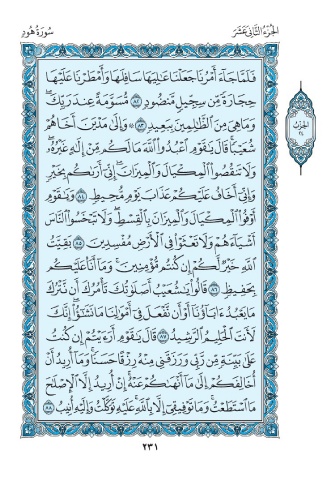 الجزء الثاني عشر
سورة هود
فَلَمَّا جَآءَ أَمْرُنَا جَعَلْنَا عَٰلِيَهَا سَافِلَهَا وَأَمْطَرْنَا عَلَيْهَا
حِجَارَةً مِّن سِجِّيلٍ مَّنضُودٍ ٨٢ مُّسَوَّمَةً عِندَ رَبِّكَۖ
وَمَا هِيَ مِنَ ٱلظَّٰلِمِينَ بِبَعِيدٍ ٨٣ ۞ وَإِلَىٰ مَدْيَنَ أَخَاهُمْ
شُعَيْبًاۚ قَالَ يَٰقَوْمِ ٱعْبُدُوا۟ ٱللَّهَ مَا لَكُم مِّنْ إِلَٰهٍ غَيْرُهُۥۖ
وَلَا تَنقُصُوا۟ ٱلْمِكْيَالَ وَٱلْمِيزَانَۖ إِنِّيٓ أَرَىٰكُم بِخَيْرٍ
وَإِنِّيٓ أَخَافُ عَلَيْكُمْ عَذَابَ يَوْمٍ مُّحِيطٍ ٨٤ وَيَٰقَوْمِ
أَوْفُوا۟ ٱلْمِكْيَالَ وَٱلْمِيزَانَ بِٱلْقِسْطِۖ وَلَا تَبْخَسُوا۟ ٱلنَّاسَ
أَشْيَآءَهُمْ وَلَا تَعْثَوْا۟ فِي ٱلْأَرْضِ مُفْسِدِينَ ٨٥ بَقِيَّتُ
ٱللَّهِ خَيْرٌ لَّكُمْ إِن كُنتُم مُّؤْمِنِينَۚ وَمَآ أَنَا۠ عَلَيْكُم
بِحَفِيظٍ ٨٦ قَالُوا۟ يَٰشُعَيْبُ أَصَلَوٰتُكَ تَأْمُرُكَ أَن نَّتْرُكَ
مَا يَعْبُدُ ءَابَآؤُنَآ أَوْ أَن نَّفْعَلَ فِيٓ أَمْوَٰلِنَا مَا نَشَٰٓؤُا۟ۖ إِنَّكَ
لَأَنتَ ٱلْحَلِيمُ ٱلرَّشِيدُ ٨٧ قَالَ يَٰقَوْمِ أَرَءَيْتُمْ إِن كُنتُ
عَلَىٰ بَيِّنَةٍ مِّن رَّبِّي وَرَزَقَنِي مِنْهُ رِزْقًا حَسَنًاۚ وَمَآ أُرِيدُ أَنْ
أُخَالِفَكُمْ إِلَىٰ مَآ أَنْهَىٰكُمْ عَنْهُۚ إِنْ أُرِيدُ إِلَّا ٱلْإِصْلَٰحَ
مَا ٱسْتَطَعْتُۚ وَمَا تَوْفِيقِيٓ إِلَّا بِٱللَّهِۚ عَلَيْهِ تَوَكَّلْتُ وَإِلَيْهِ أُنِيبُ ٨٨
الحزب
٢٤
٢٣١